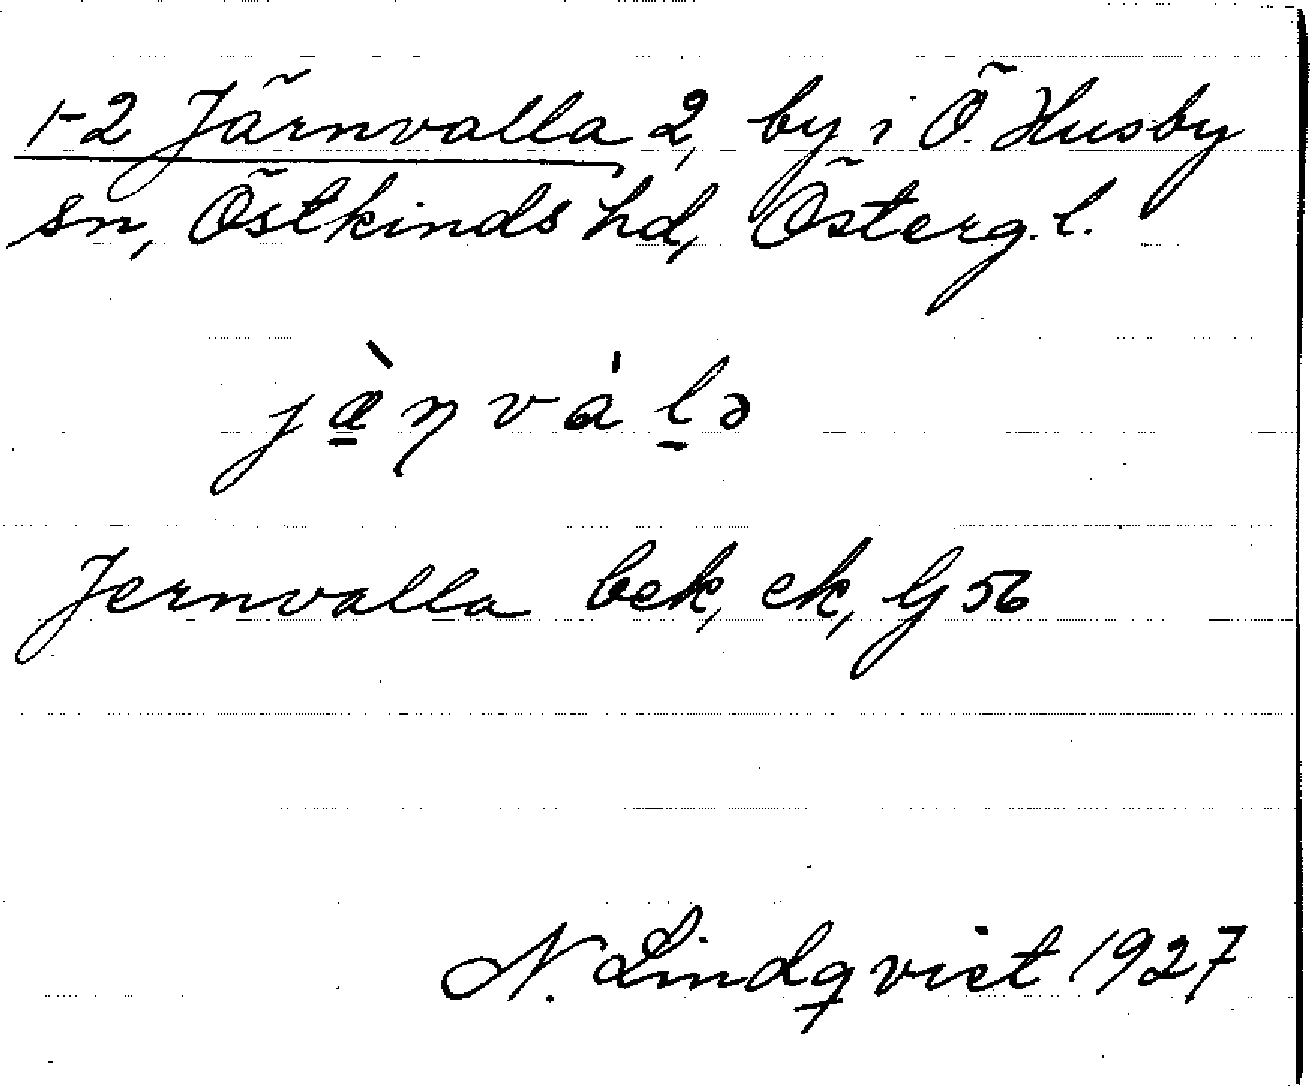 1-2 Järnvalla 2, by i Ö. Husby
sn, Östkinds hd, Österg. l.
jæ̀ṇválə
Jernvalla bek, ek, Gj 56
N. Lindqvist 1927